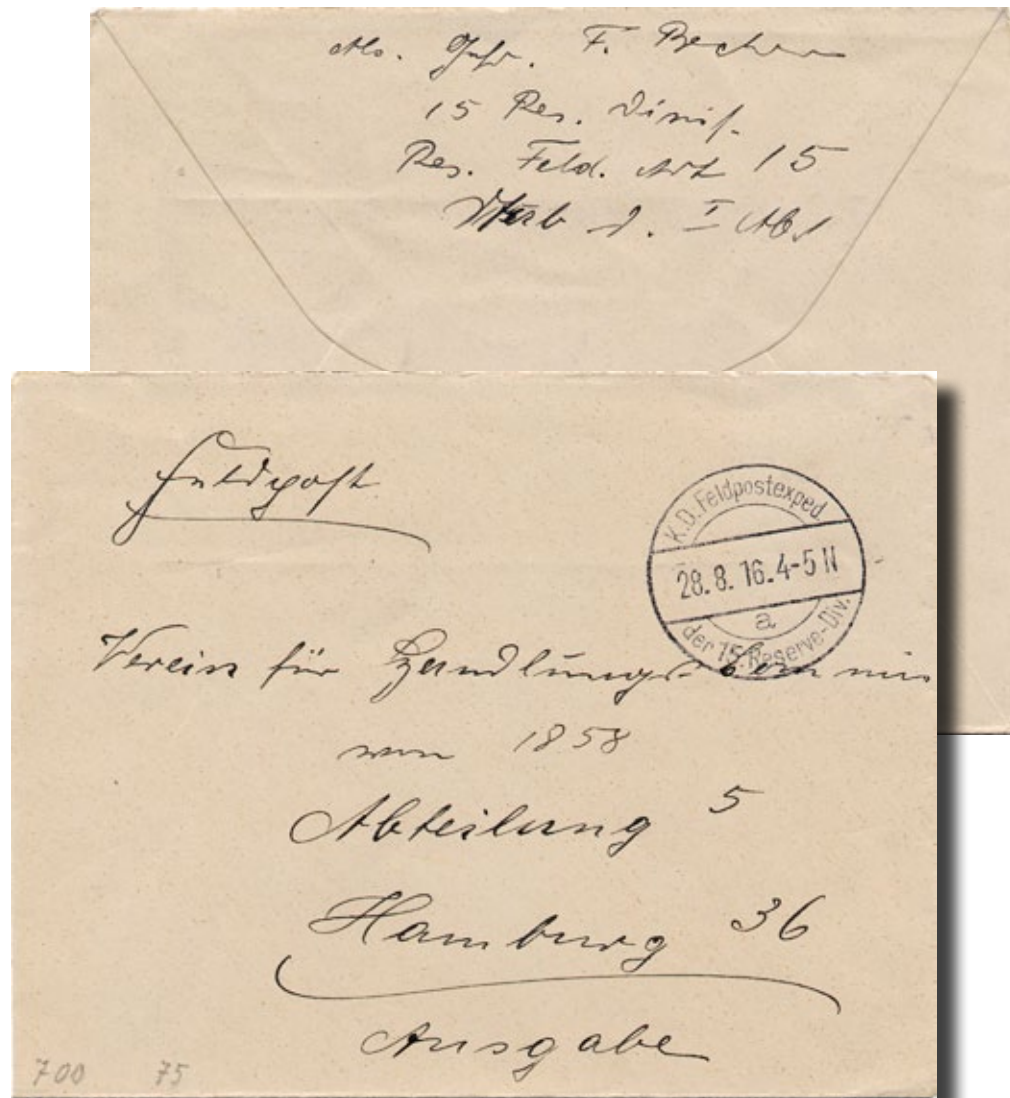 Abs. Gefr. F. Becker
15 Res. Divis.
Res. Feld. Art 15
Stab d. I Abt
Feldpost
K.D. Feldpostexped.
28.8.16.4-5 N
a.
der 15. Reserve-Div.
Verein für Handlungs-Commis
von 1858
Abteilung 5
Hamburg 36
Ausgabe
700 75